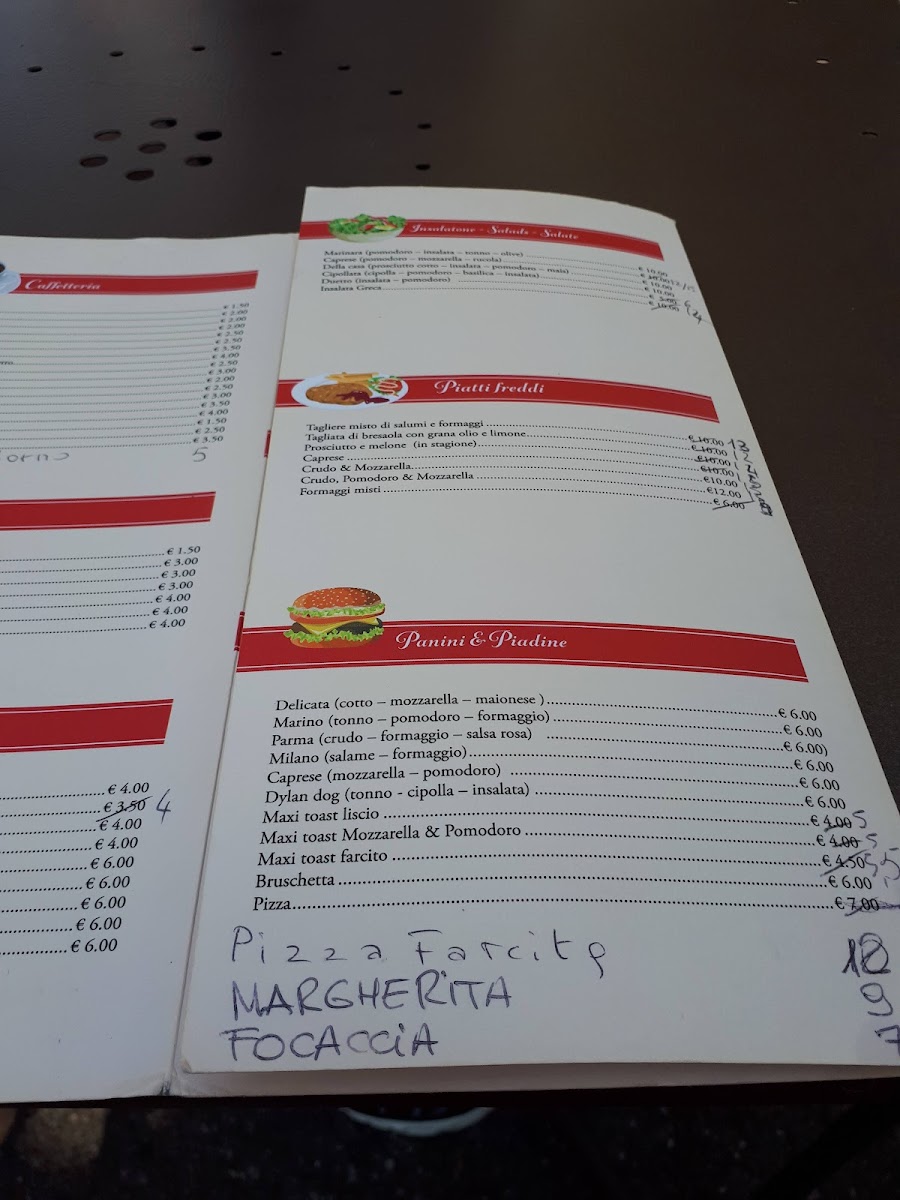 Caffetteria
€ 1.50
€ 2.00
€ 2.00
€ 2.00
€ 2.50
€ 2.50
€ 3.50
€ 4.00
€ 2.50
€ 3.00
€ 2.00
€ 2.50
€ 3.00
€ 3.50
€ 4.00
€ 1.50
€ 2.50
€ 3.50
orno 5
€ 1.50
€ 3.00
€ 3.00
€ 3.00
€ 4.00
€ 4.00
€ 4.00
€ 4.00
€ 3.50 4
€ 4.00
€ 4.00
€ 6.00
€ 6.00
€ 6.00
€ 6.00
€ 6.00
Insalatone - Salads - Salate
Marinara (pomodoro – insalata – tonno – olive) € 10.00
Caprese (pomodoro – mozzarella – rucola) € 10.00
Della casa (prosciutto cotto – insalata – pomodoro – mais) € 10.00
Cipollata (cipolla – pomodoro – basilica – insalata) € 10.00
Duetto (insalata – pomodoro) € 5.00
Insalata Greca € 10.00
Piatti freddi
Tagliere misto di salumi e formaggi € 10.00
Tagliata di bresaola con grana olio e limone € 10.00
Prosciutto e melone (in stagione) € 10.00
Caprese €10.00
Crudo & Mozzarella €10.00
Crudo, Pomodoro & Mozzarella €12.00
Formaggi misti € 6.00
Panini & Piadine
Delicata (cotto – mozzarella – maionese ) € 6.00
Marino (tonno – pomodoro – formaggio) € 6.00
Parma (crudo – formaggio – salsa rosa) € 6.00)
Milano (salame – formaggio) € 6.00
Caprese (mozzarella – pomodoro) € 6.00
Dylan dog (tonno - cipolla – insalata) € 6.00
Maxi toast liscio € 4.00 5
Maxi toast Mozzarella & Pomodoro € 4.00 5
Maxi toast farcito € 4.50 5,5
Bruschetta € 6.00
Pizza € 7.00
Pizza Farcita
MARGHERITA 9
FOCACCIA 7